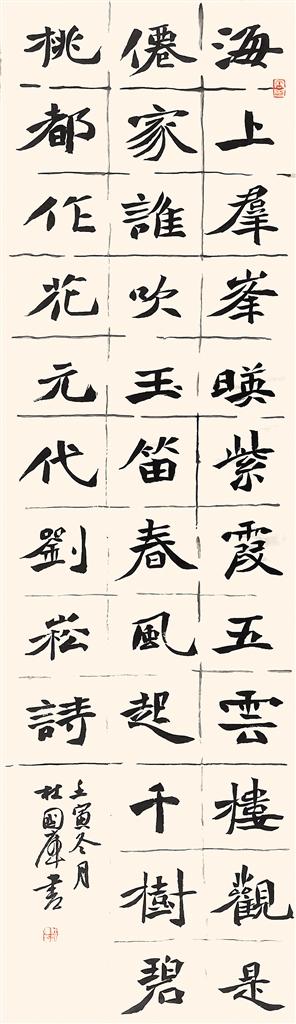 海上羣峯暎紫霞五雲樓觀是
僊家誰吹玉笛春風起千樹碧
桃都作花元代劉崧詩
壬寅冬月
杜國庫書